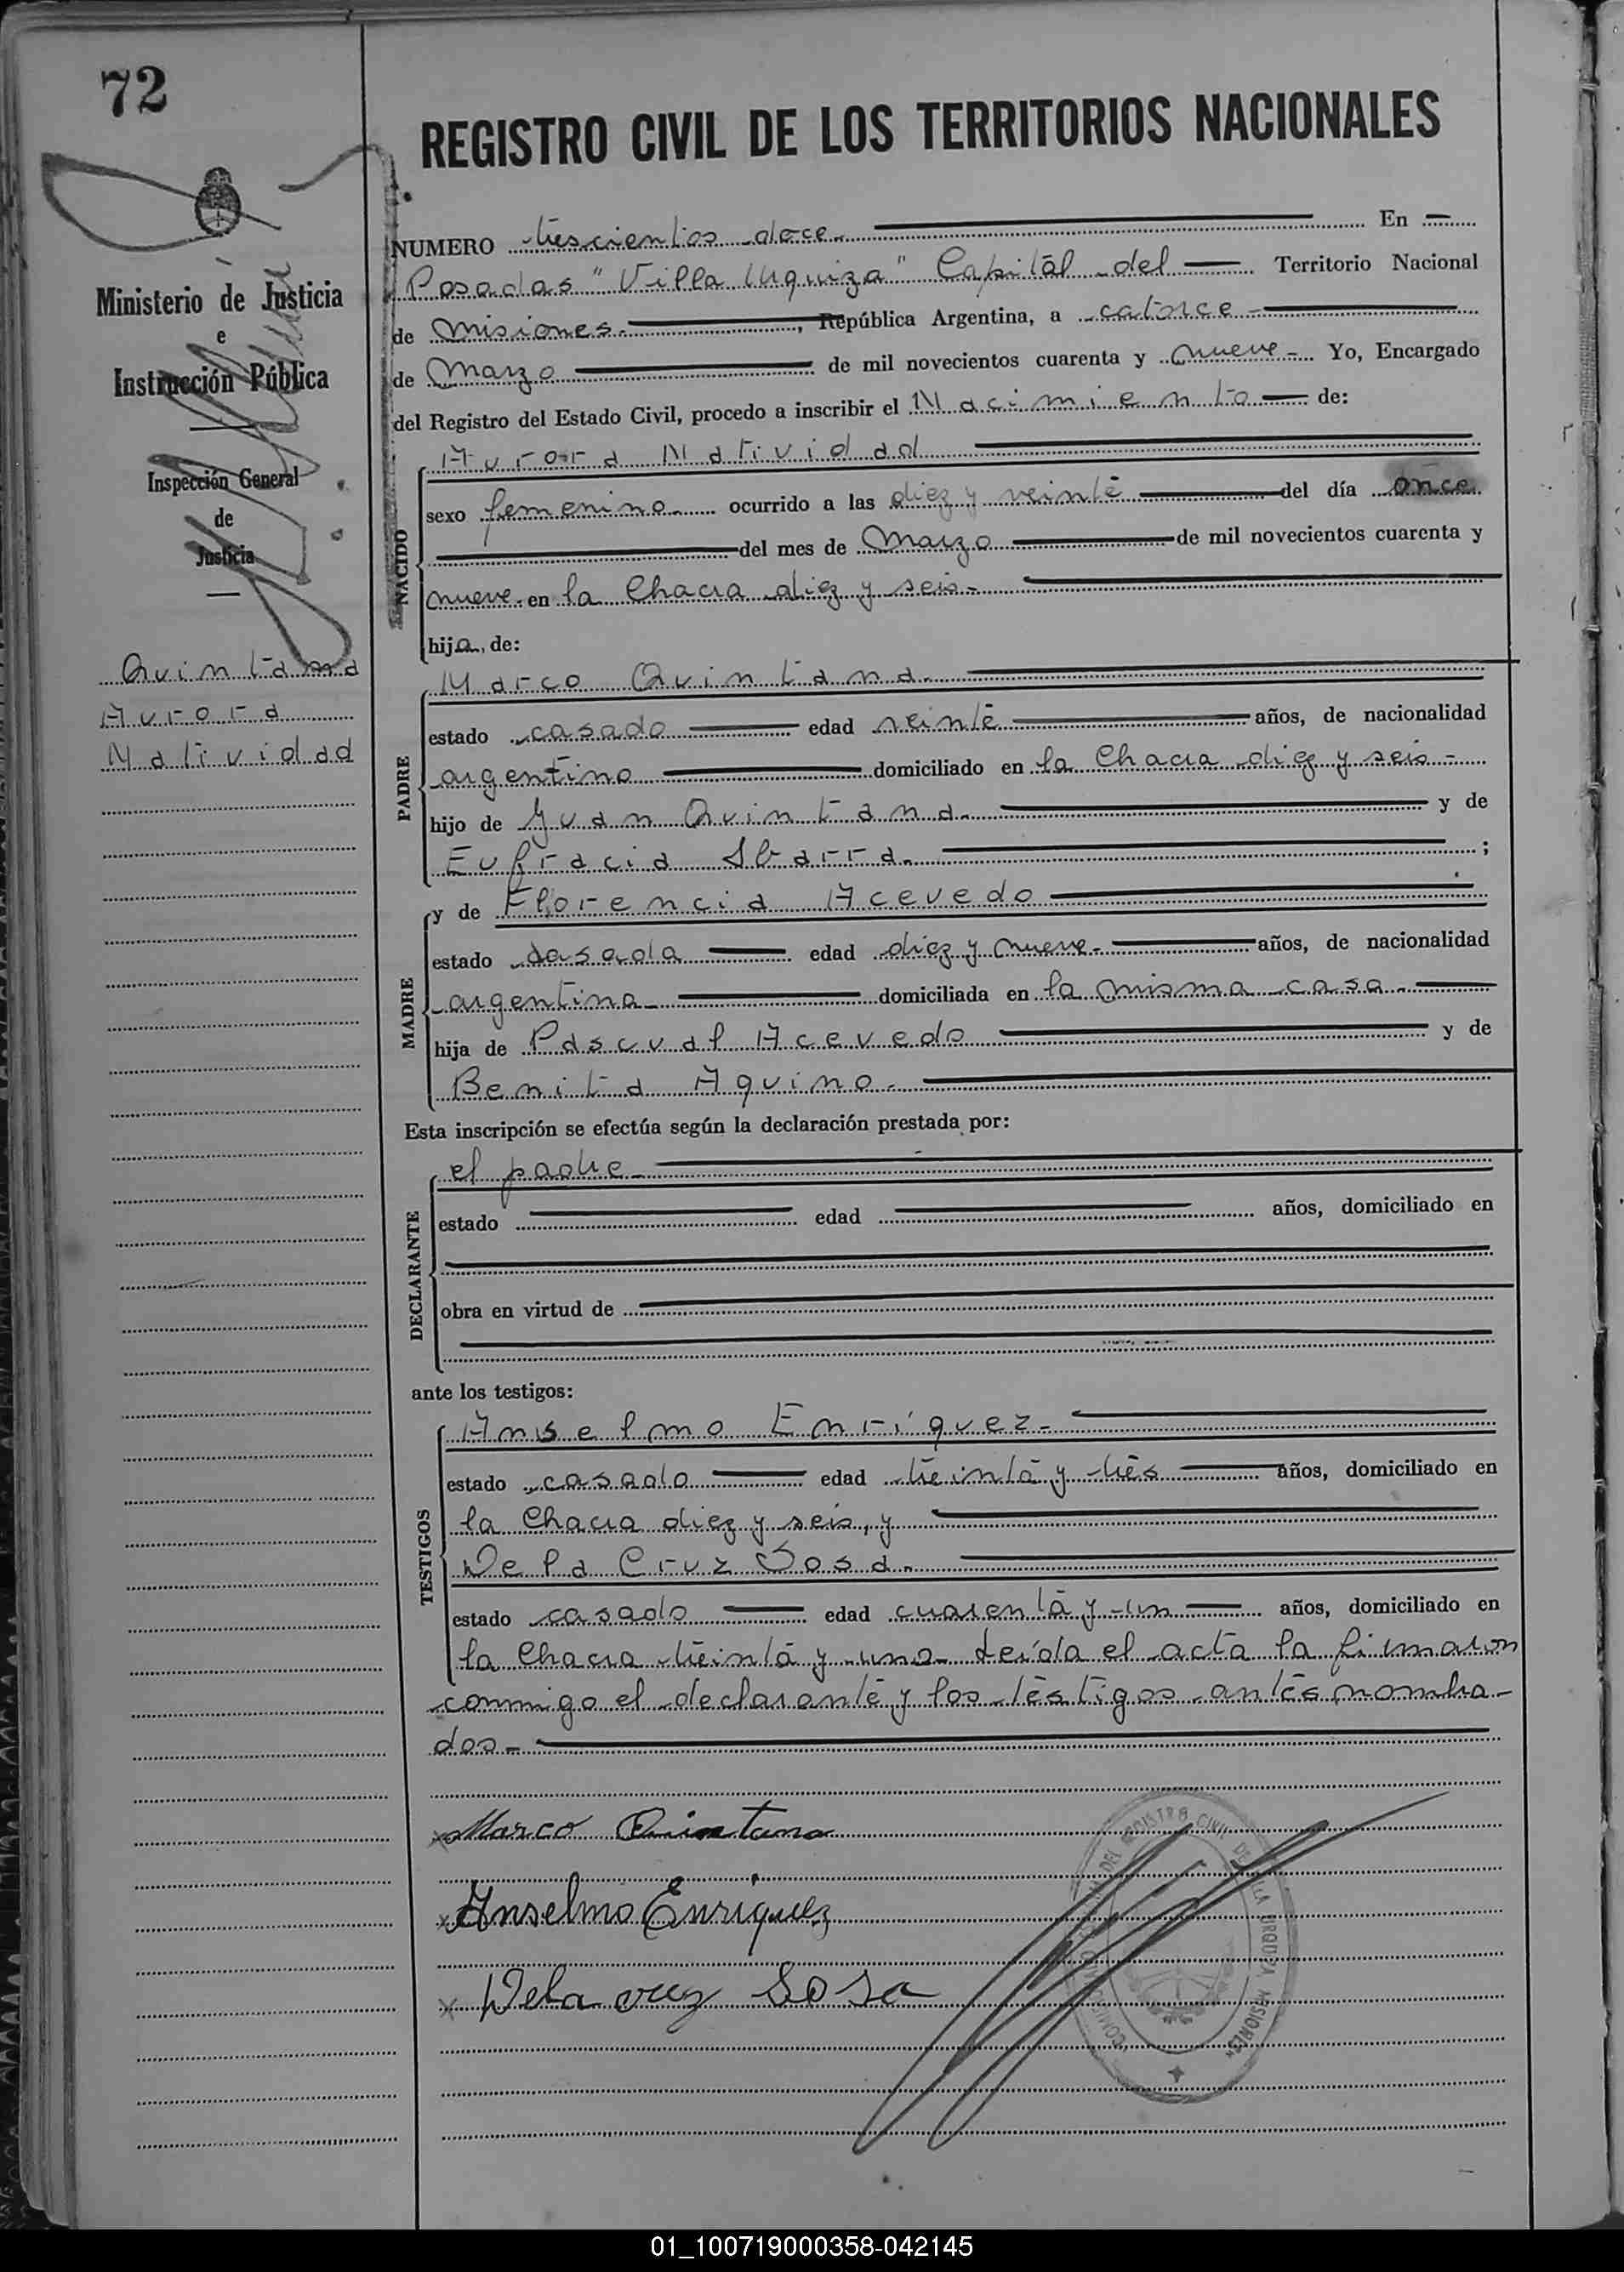 72
REGISTRO CIVIL DE LOS TERRITORIOS NACIONALES
Ministerio de Justicia
e
Instrucción Pública
Inspección General
de
Justicia
Quintana
Aurora
Natividad
NUMERO trescientos doce. En
Posadas "Villa Urquiza" Capital del Territorio Nacional
de Misiones. , República Argentina, a catorce
de Marzo de mil novecientos cuarenta y nueve Yo, Encargado
del Registro del Estado Civil, procedo a inscribir el Nacimiento de:
Aurora Natividad
NACIDO
sexo femenino. ocurrido a las diez y veinte del día once
del mes de Marzo de mil novecientos cuarenta y
nueve. en la Chacra diez y seis
hija, de:
PADRE
Marco Quintana.
estado casado edad veinte años, de nacionalidad
argentino domiciliado en la Chacra diez y seis
hijo de Juan Quintana. y de
Eufracia Ibarra. ;
MADRE
y de Florencia Acevedo
estado casada edad diez y nueve años, de nacionalidad
argentina domiciliada en la misma casa.
hija de Pascual Acevedo y de
Benita Aquino.
Esta inscripción se efectúa según la declaración prestada por:
DECLARANTE
el padre
estado edad años, domiciliado en
obra en virtud de
ante los testigos:
TESTIGOS
Anselmo Enríquez
estado casado edad treinta y tres años, domiciliado en
la Chacra diez y seis, y
De la Cruz Sosa.
estado casado edad cuarenta y un años, domiciliado en
la Chacra treinta y uno Leída el acta la firmaron
conmigo el declarante y los testigos antes nombra-
dos
Marco Quintana
Anselmo Enriquez
Dela cruz Sosa
REGISTRO CIVIL DE VILLA URQUIZA MISIONES
01_100719000358-042145